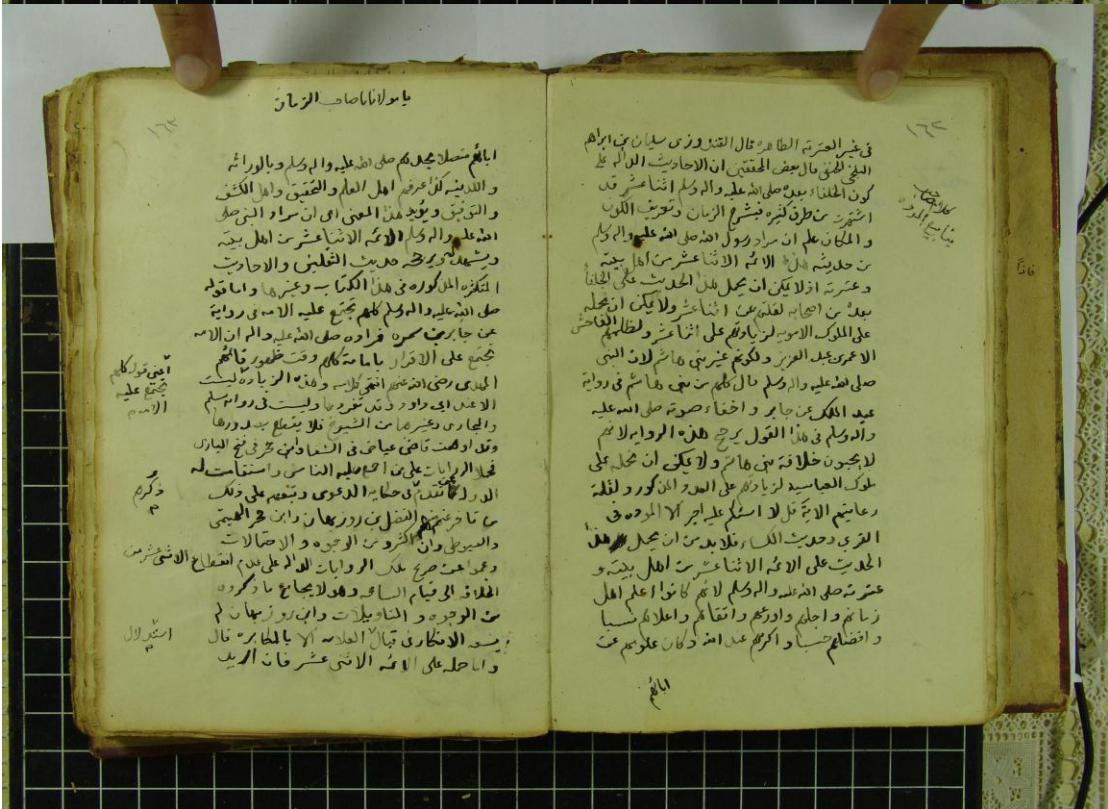 ١٦٢
كلام صاحب
ينابيع الموده
فى غير العترته الطاهره قال القندوزى سليمان بن ابراهيم
البلخى الحنفى قال بعض المحققين ان الاحاديث الداله على
كون الخلفاء بعده صلى الله عليه واله وسلم اثنا عشر قد
اشتهرت من طرق كثيره فبشرح الزمان وتعريف الكون
والمكان علم ان مراد رسول الله صلى الله عليه واله وسلم
من حديثه هذا الائمه الاثنا عشر من اهل بيته
وعترته اذ لا يمكن ان يحمل هذا الحديث على الخلفاء
بعده من اصحابه لقلتهم عن اثنا عشر ولا يمكن ان يحمله
على الملوك الامويه لزيادتهم على اثنا عشر ولظلمهم الفاحش
الا عمر بن عبد العزيز ولكونهم غير بنى هاشم لان النبى
صلى الله عليه واله وسلم قال كلهم من بنى هاشم فى رواية
عبد الملك عن جابر واخفاء صوته صلى الله عليه
واله وسلم فى هذا القول يرجح هذه الروايه لانهم
لا يحبون خلافة بنى هاشم ولا يمكن ان يحمله على
ملوك العباسيه لزيادتهم على العدد المذكور ولقلة
رعايتهم الاية قل لا اسئلكم عليه اجرا الا الموده فى
القربى وحديث الكساء فلا بد من ان يحمل هذا
الحديث على الائمه الاثنا عشر من اهل بيته و
عترته صلى الله عليه واله وسلم لانهم كانوا اعلم اهل
زمانهم واجلهم واورعهم واتقاهم واعلاهم نسبا
وافضلهم حسبا واكرمهم عند الله وكان علومهم عن
ابائهم
١٦٣
يا مولانا يا صاحب الزمان
ابائهم متصلا بجدهم صلى الله عليه واله وسلم وبالوراثه
واللدنيه كذا عرفهم اهل العلم والتحقيق واهل الكشف
والتوفيق ويؤيد هذا المعنى اى ان مراد النبى صلى
الله عليه واله وسلم الائمه الاثنا عشر من اهل بيته
ويشهده ويرجحه حديث الثقلين والاحاديث
المتكثره المذكوره فى هذا الكتاب وغيرها واما قوله
صلى الله عليه واله وسلم كلهم تجتمع عليه الامه فى رواية
عن جابر بن سمره فمراده صلى الله عليه واله ان الامه
تجتمع على الاقرار بامامة كلهم وقت ظهور قائمهم
المهدى رضى الله عنهم انتهى كلامه وهذه الزيادة ليست
الا عند ابى داود وقد تفرد بها وليست فى رواية مسلم
والبخارى وغيرهما من الشيوخ فلا يقطع بصدورها
وقد اوهمت قاضى عياض فى الشفا وابن حجر فى فتح البارى
فحملا الروايات على من اجمع عليه الناس واستقامت له
الدولة كما تقدم فى حكايه الدعوى وتبعه على ذلك
من تاخر عنهم الفضل بن روزبهان وابن حجر الهيتمى
والسيوطى وان اكثروا من الوجوه والاحتمالات
وعموا عن صريح تلك الروايات الداله على عدم انقطاع الاثنى عشر من
الخلافه الى قيام الساعه وهو لا يجامع ما ذكروه
من الوجوه والتاويلات وابن روزبهان لم
يسعه الانكار فى قبال العلامه الا بالمكابره قال
واما حمله على الائمه الاثنى عشر فان اريد
اعنى قوله كلهم
تجتمع عليه
الامه
ذكرهم
استدلال